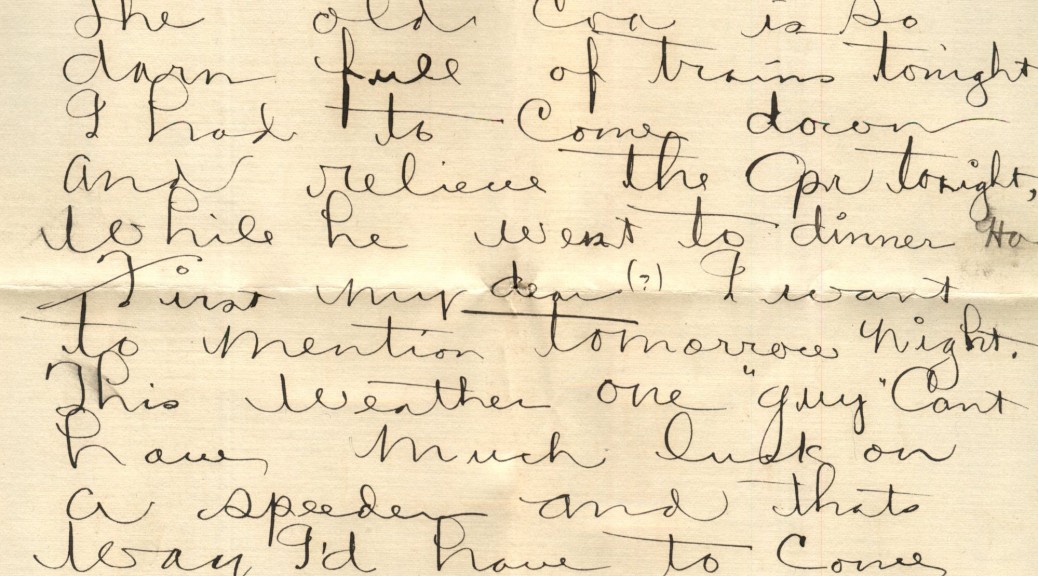 The old Coa is so
darn full of trains tonight
I had to come down
and relieve the Opr tonight,
while he went to dinner Ho
First my dear (?) I want
to mention tomorrow night.
This weather one "guy" Cant
have much luck on
a speeder and thats
way I'd have to come